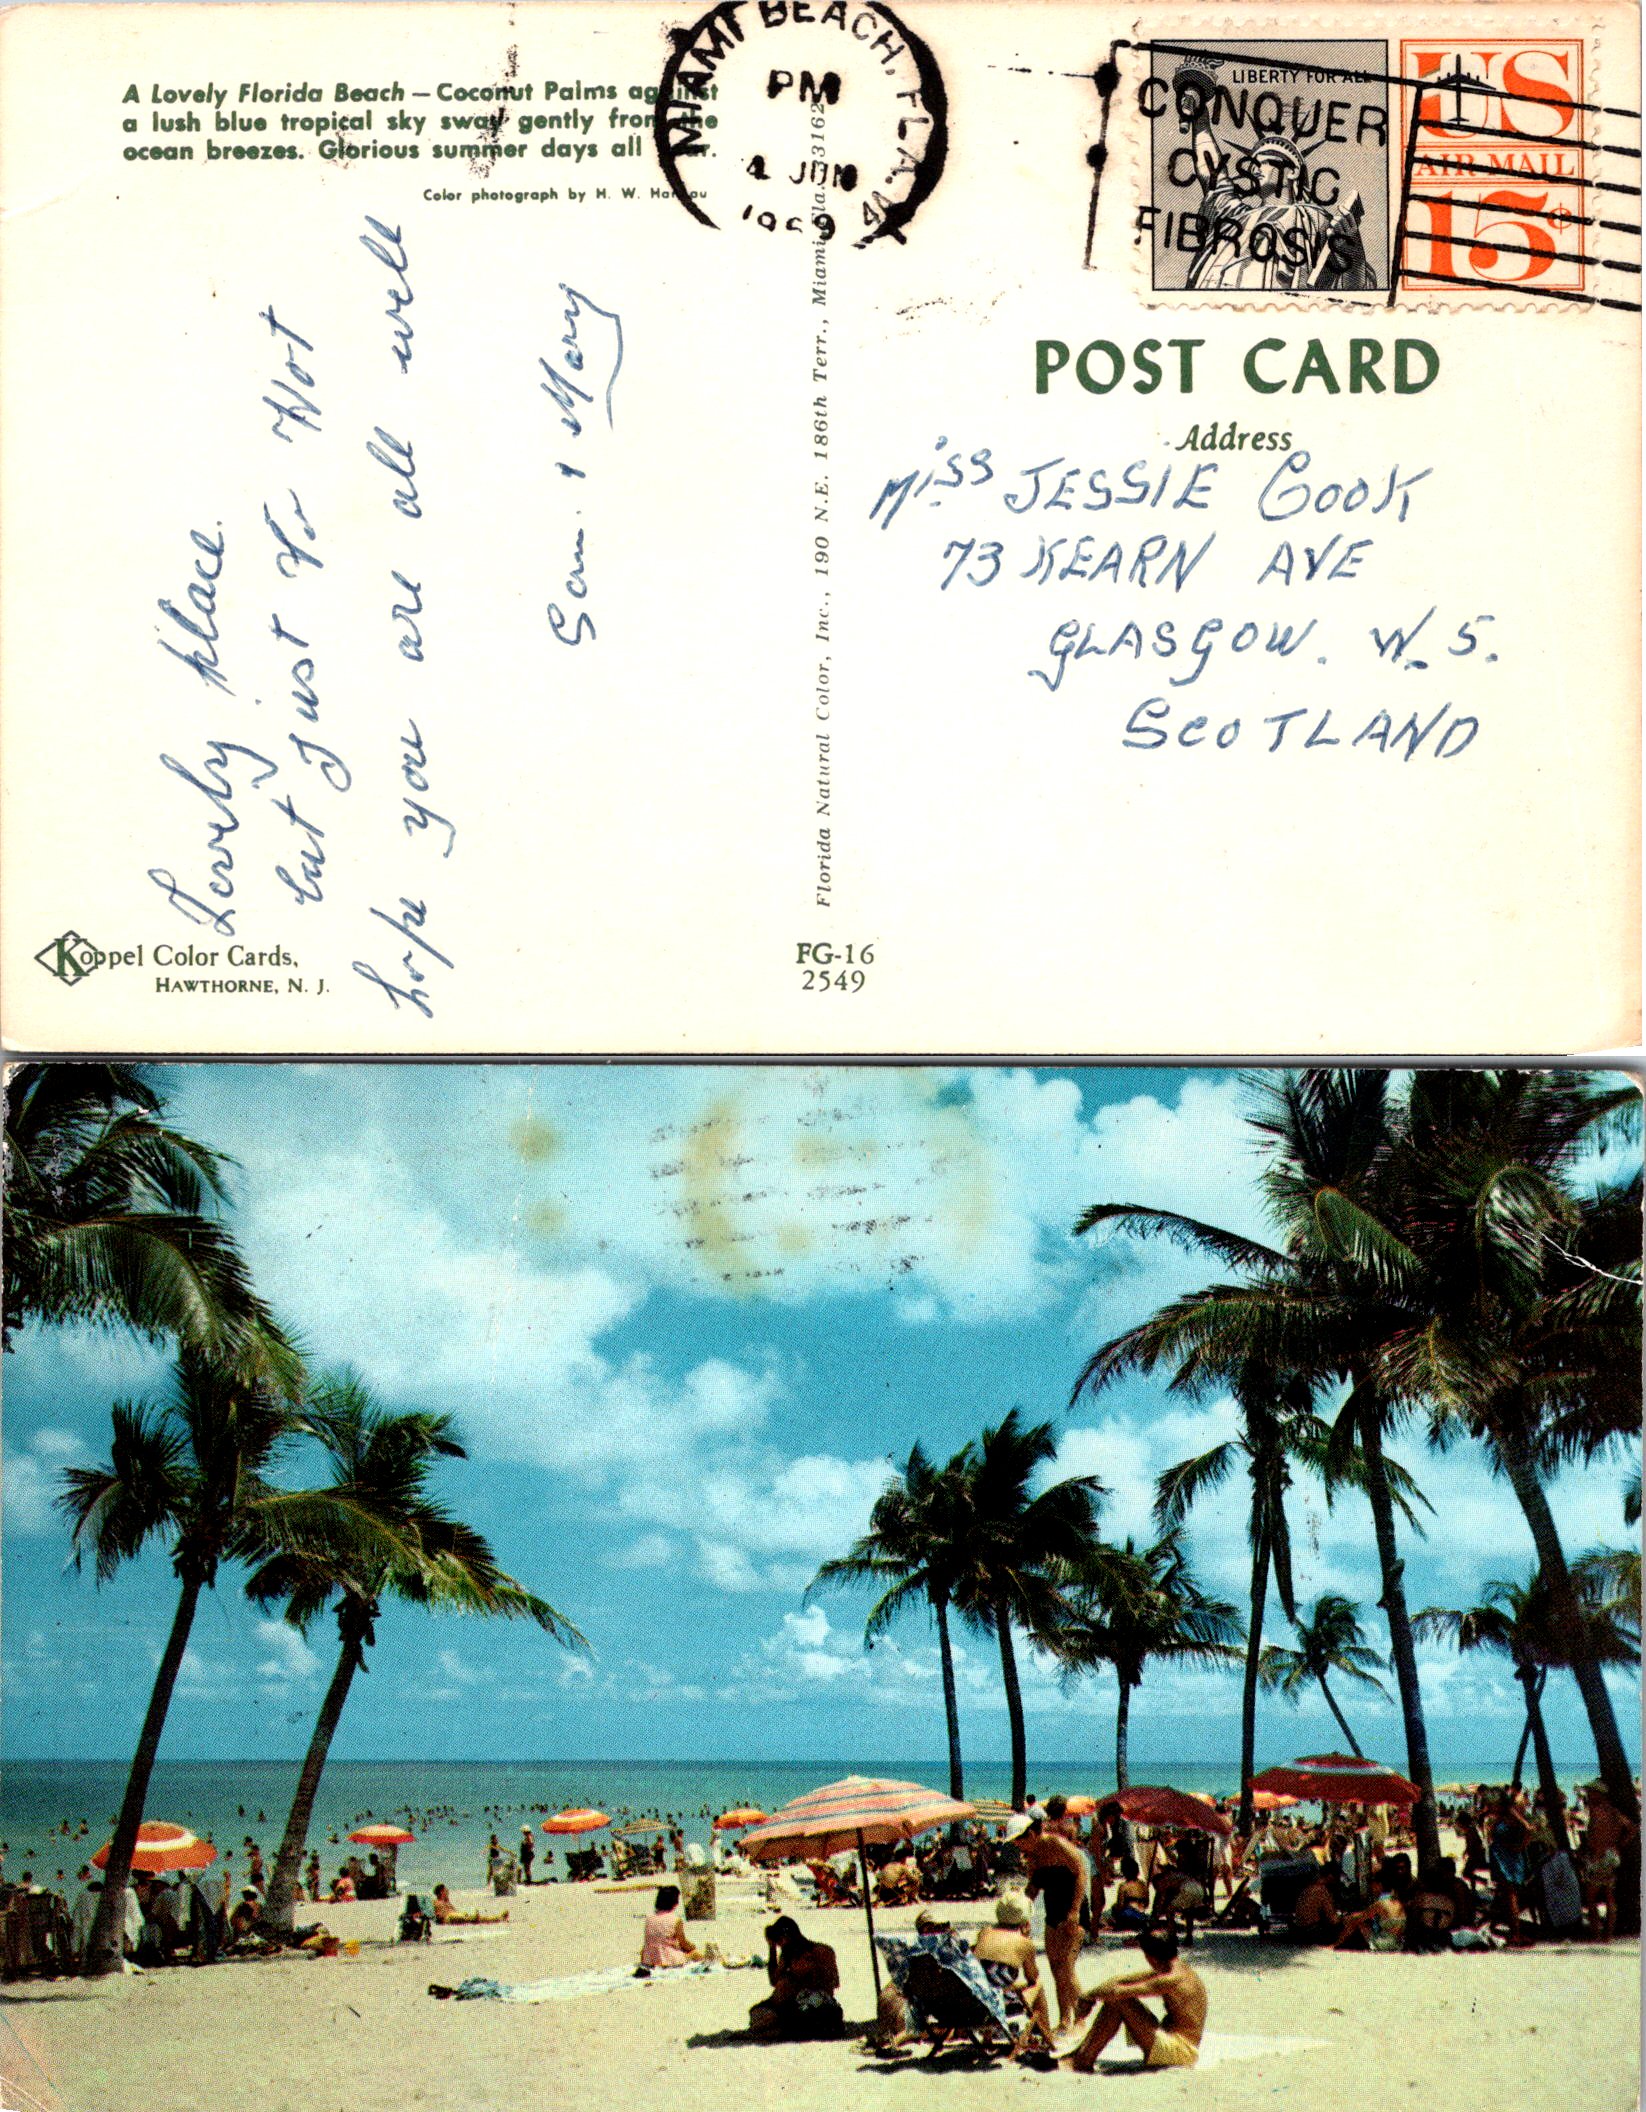 A Lovely Florida Beach — Coconut Palms against
a lush blue tropical sky sway gently from the
ocean breezes. Glorious summer days all
Color photograph by H. W.
MIAMI BEACH, FLA.
PM
4 JUN
1969
CONQUER
CYSTIC
FIBROSIS
LIBERTY FOR ALL
US
AIR MAIL
15¢
POST CARD
Address
Miss JESSIE COOK
73 KEARN AVE
GLASGOW. W.S.
SCOTLAND
Lovely place.
but Just To Hot
hope you are all well
Sam. & Mary
Florida Natural Color, Inc., 190 N.E. 186th Terr., Miami, Fla. 33162
Koppel Color Cards,
HAWTHORNE, N. J.
FG-16
2549